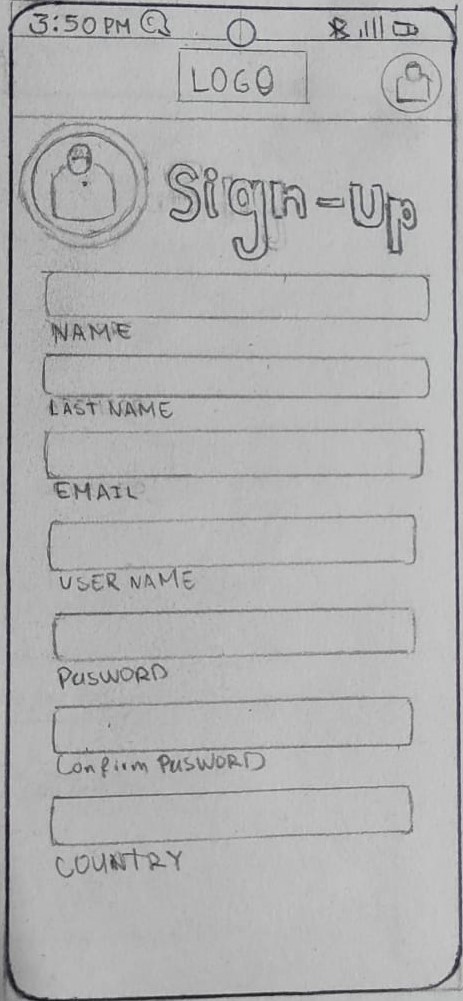 3:50 PM
LOGO
Sign-Up
NAME
LAST NAME
EMAIL
USER NAME
PUSWORD
Confirm PUSWORD
COUNTRY